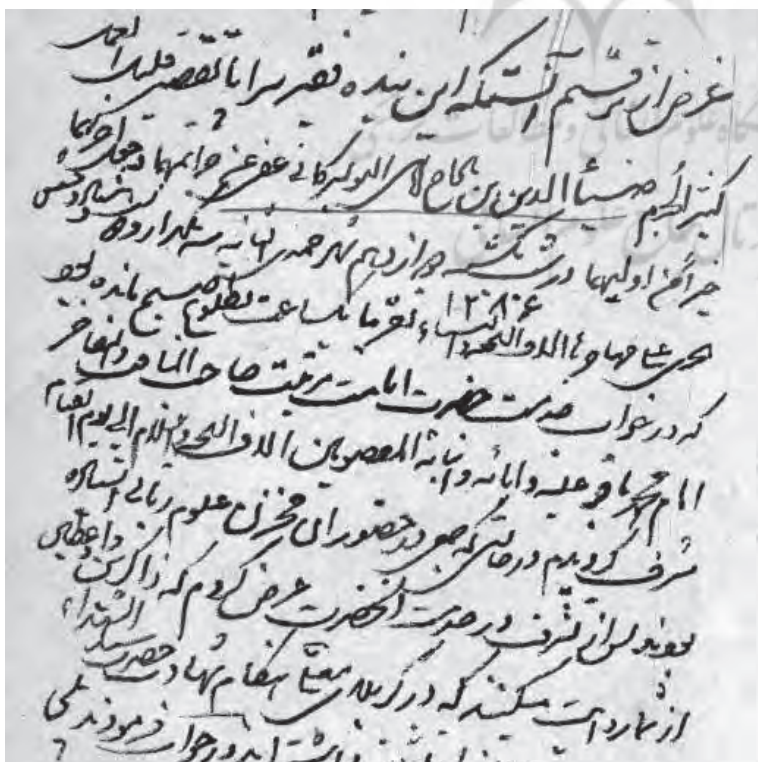 غرض از ترقیم آنستکه این بنده فقیر سراپا تقصیر قلیل العمل
کثیر الجرم ضیاء الدین بن الحاج عفی عن جرائمهما وجعل اخریهما
خیراً من اولیهما در شب یکشنبه دوازدهم شهر جمادی الثانیه سنه هزار و
علی هاجرها آلاف التحیة ۱۲۸۶ تقریبا یکساعت بطلوع صبح مانده بود
که در خواب خدمت حضرت امامت مرتبت صاحب المناقب والمفاخر
امام محمد باقر علیه وآبائه وابنائه المعصومین آلاف التحیة والسلام الی یوم القیام
شرف گردیدم در حالتی که جمعی در حضور آن مخزن علوم ربانی ایستاده
بودند پس از تشرف در خدمت آنحضرت عرض کردم که ذاکرین و واعظین
از شما روایت میکنند که در کربلای معلی هنگام شهادت حضرت سید الشهداء
در جواب فرمودند بلی